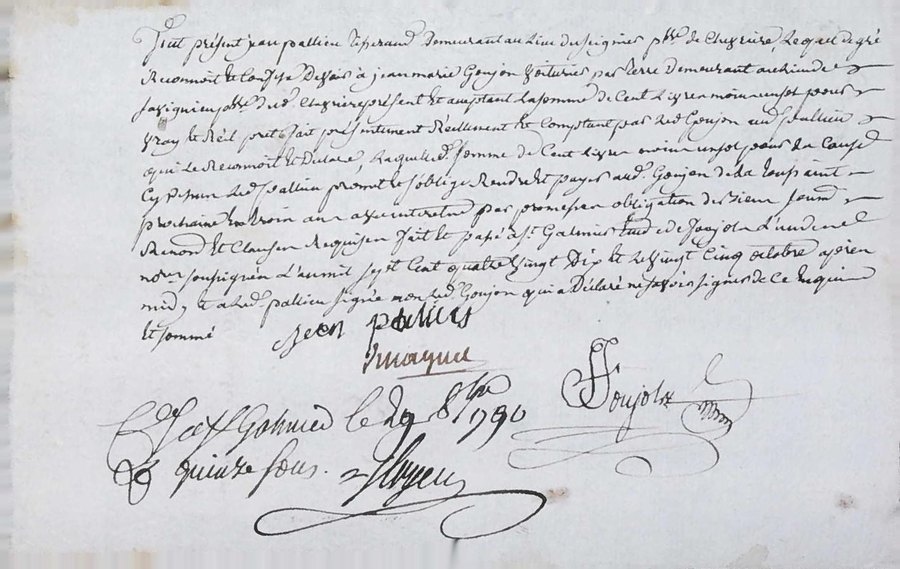 Fut présent jean pallieu tisserand demeurant au lieu du seignier psse de chevriere, Lequel de gré
Reconnoit et confesse devoir à jean marie Goujon voiturier par terre demeurant au lieu de
Savignieu psse dud. Chevriere présent et acceptant La somme de Cent Livres moin un sol pour
vray et Réel prêt fait présentement Réellement et Comptant par led Goujon aud pallieu
qui Le Reconnoit et declare, Laquelle d. somme de Cent Livres moin un sol pour La Cause
Cy dessus Led pallieu promet et s'oblige Rendre et payer aud. Goujon de La toussaint
prochaine en trois ans avec interets par promesse obligation de biens soumd
Renond et Clauses Requises fait et passé à St. Galmier Etude de Soujols L'un des
nores soussignées L'an mil sept Cent quatre vingt Dix et Le vingt Cinq octobre après
midy et a Led. pallieu signé non Led. Goujon qui a déclaré ne savoir signer de Ce Enquis
Et sommé
jean pallieu
Soujols
à St Galmier le 29 8bre 1790
quinze sous.